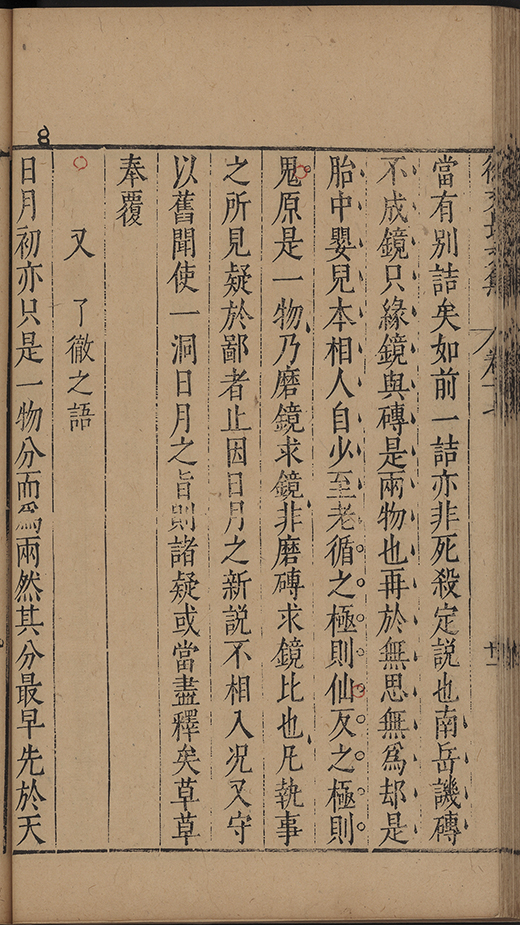 徐文長文集 卷十七 十一
當有別詰矣如前一詰亦非死殺定説也南岳譏磚
不成鏡只緣鏡與磚是兩物也再於無思無爲却是
胎中嬰兒本相人自少至老循之極則仙反之極則
鬼原是一物乃磨鏡求鏡非磨磚求鏡比也凡執事
之所見疑於鄙者止因日月之新説不相入况又守
以舊聞使一洞日月之旨則諸疑或當盡釋矣草草
奉覆
又 了徹之語
日月初亦只是一物分而爲兩然其分最早先於天
8